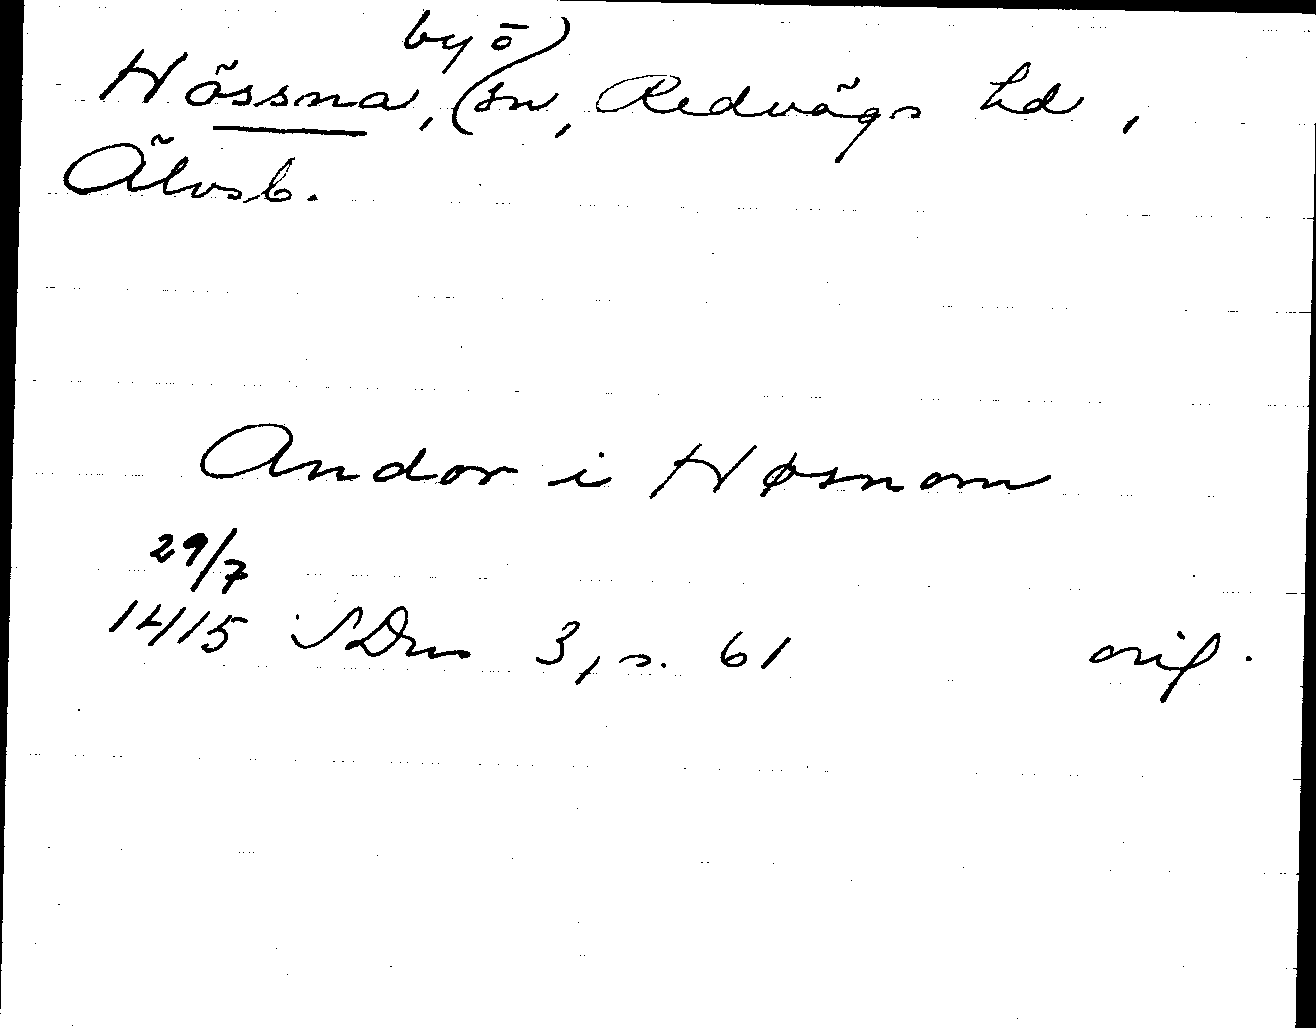 by o)
Hössna, (sn, Redvägs hd,
Älvsb.
Andor i Høsnom
29/7
1415 SDns 3, s. 61 orig.